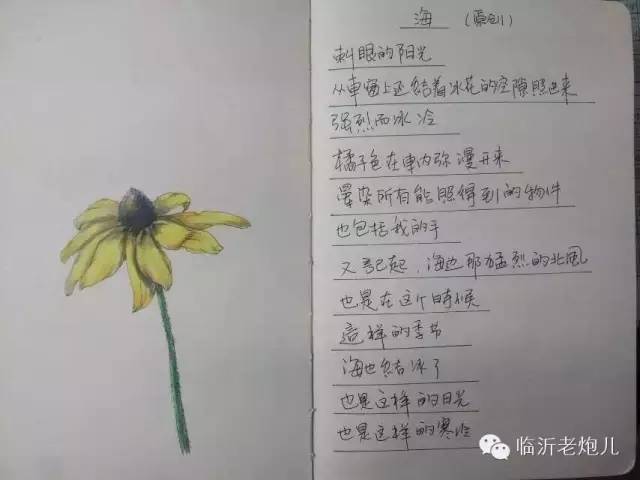 海 (原创)
刺眼的阳光
从車窗上还结着冰花的空隙照进来
强烈而冰冷
橘子色在車内弥漫开来
晕染所有能照得到的物件
也包括我的手
又記起,海边那猛烈的北風
也是在这个時候
這样的季节
海也结冰了
也是这样的日光
也是这样的寒冷
临沂老炮儿